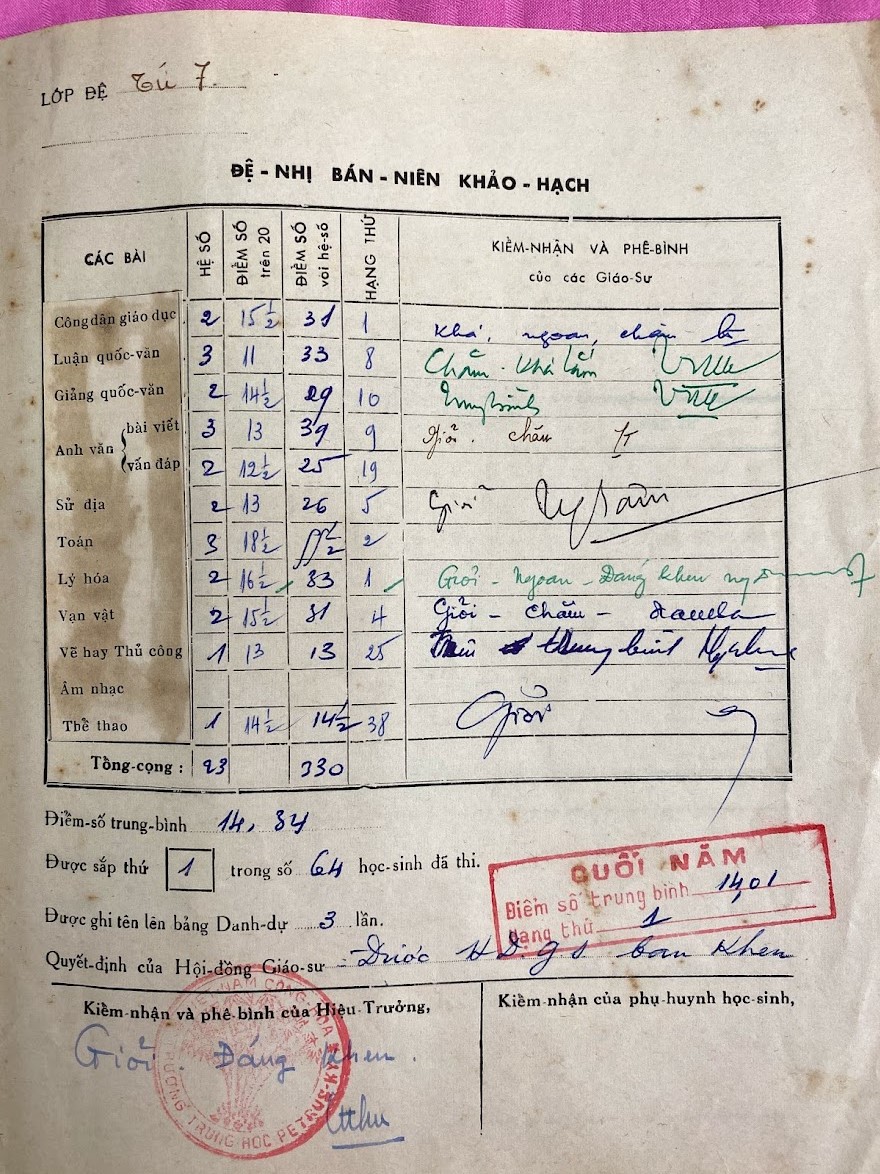 LỚP ĐỆ Tứ 7
ĐỆ - NHỊ BÁN - NIÊN KHẢO - HẠCH
CÁC BÀI HỆ SỐ ĐIỂM SỐ trên 20 ĐIỂM SỐ với hệ-số HẠNG THỨ KIỂM-NHẬN VÀ PHÊ-BÌNH của các Giáo-Sư
Công dân giáo dục 2 15 1/2 31 1 Khá, ngoan, chăm
Luận quốc-văn 3 11 33 8 Chăm - Khá lắm
Giảng quốc-văn 2 14 1/2 29 10 Trung bình
Anh văn bài viết 3 13 39 9 Giỏi. chăm
vấn đáp 2 12 1/2 25 19
Sử địa 2 13 26 5 Giỏi
Toán 3 18 1/2 55 1/2 2
Lý hóa 2 16 1/2 33 1 Giỏi - Ngoan - Đáng khen
Vạn vật 2 15 1/2 31 4 Giỏi - Chăm -
Vẽ hay Thủ công 1 13 13 25 trung bình
Âm nhạc
Thể thao 1 14 1/2 14 1/2 38 Giỏi
Tổng-cọng : 23 330
Điểm-số trung-bình 14, 34
Được sắp thứ 1 trong số 64 học-sinh đã thi.
CUỐI NĂM
Điểm số trung bình 14,01
Hạng thứ 1
Được ghi tên lên bảng Danh-dự 3 lần.
Quyết-định của Hội-đồng Giáo-sư Được H.D.g.s ban Khen
Kiểm-nhận và phê-bình của Hiệu-Trưởng,
Kiểm-nhận của phụ-huynh học-sinh,
Giỏi. Đáng khen.
VIỆT-NAM CỘNG HÒA
TRƯỜNG TRUNG HỌC PETRUS-KÝ